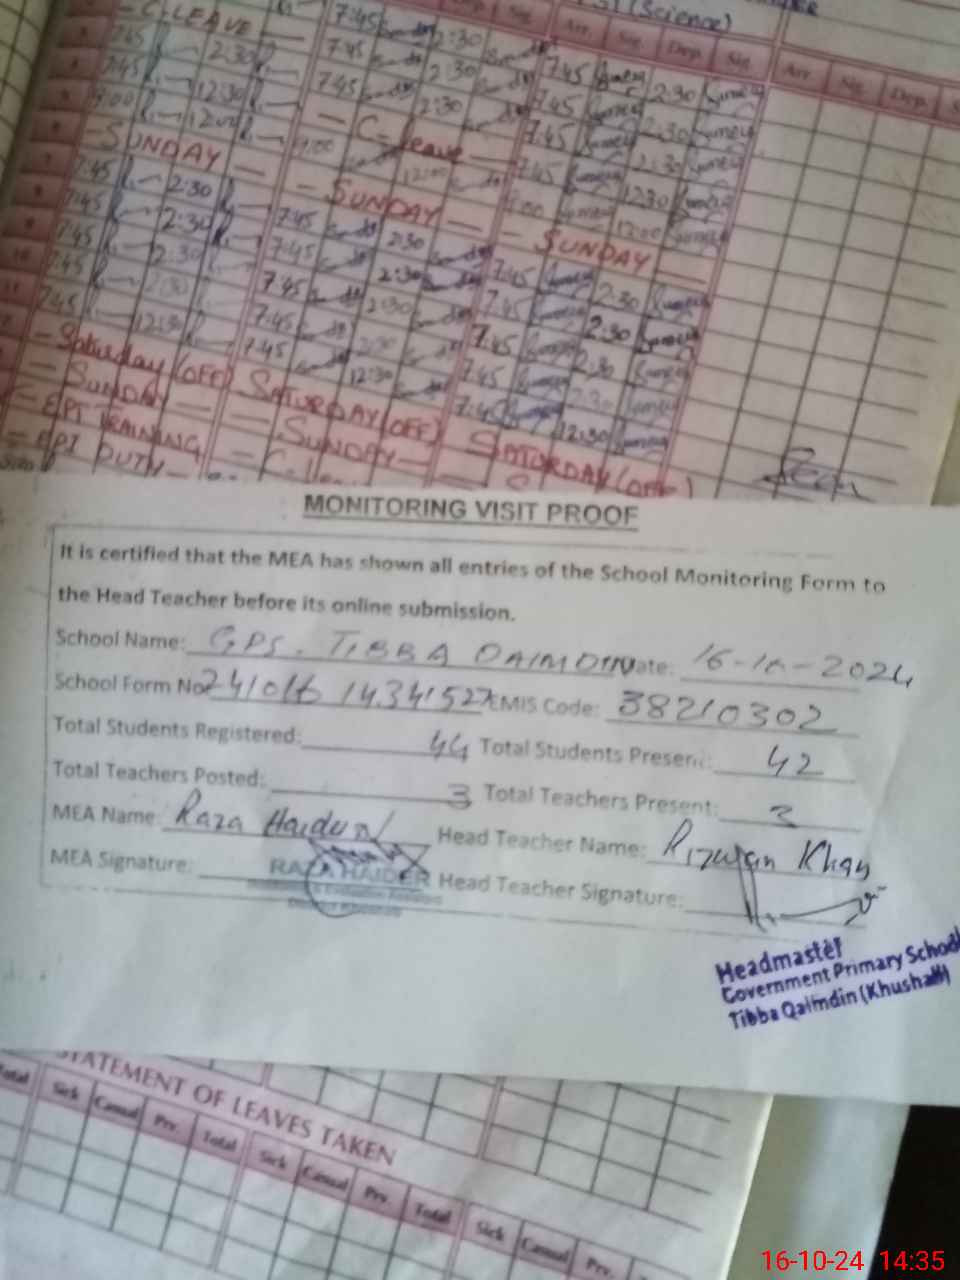 (Science)
Dep. Sig. Arr. Sig. Dep. Sig. Arr. Sig. Dep.
- C-LEAVE - 7:45 2:30 7:45 2:30
7:45 2:30 7:45 2:30 7:45 2:30
7:45 12:30 7:45 2:30 7:45 2:30
9:00 12:00 - C-leave - 7:45 12:30
- SUNDAY - 9:00 12:00 9:00 12:00
7:45 2:30 - SUNDAY - - SUNDAY -
7:45 2:30 7:45 2:30 7:45 2:30
7:45 2:30 7:45 2:30 7:45 2:30
7:45 2:30 7:45 2:30 7:45 2:30
7:45 12:30 7:45 2:30 7:45 2:30
- Saturday (OFF) 7:45 12:30 7:45 12:30
- SUNDAY - SATURDAY (OFF) SATURDAY (OFF)
- EPI TRAINING - SUNDAY -
- EPI DUTY -
MONITORING VISIT PROOF
It is certified that the MEA has shown all entries of the School Monitoring Form to
the Head Teacher before its online submission.
School Name: GPS. TIBBA QAIMDIN Date: 16-10-2024
School Form No: 241016 14341527 EMIS Code: 38210302
Total Students Registered: 44 Total Students Present: 42
Total Teachers Posted: 3 Total Teachers Present: 3
MEA Name: Raza Haider Head Teacher Name: Rizwan Khan
MEA Signature: RAZA HAIDER Head Teacher Signature:
Headmaster
Government Primary School
Tibba Qaimdin (Khushab)
STATEMENT OF LEAVES TAKEN
Total Sick Casual Prv. Total Sick Casual Prv. Total Sick Casual Prv.
16-10-24 14:35